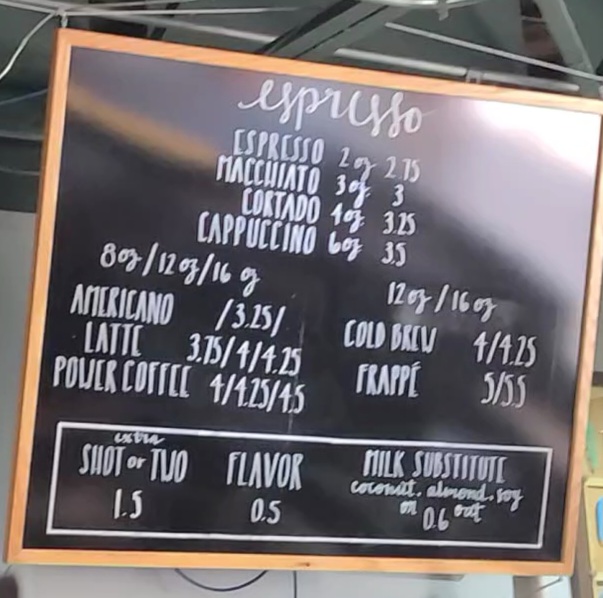 espresso
ESPRESSO 2 oz 2.75
MACCHIATO 3 oz 3
CORTADO 4 oz 3.25
CAPPUCCINO 6 oz 3.5
8 oz / 12 oz / 16 oz
AMERICANO / 3.25 /
LATTE 3.75 / 4 / 4.25
POWER COFFEE 4 / 4.25 / 4.5
12 oz / 16 oz
COLD BREW 4 / 4.25
FRAPPÉ 5 / 5.5
extra
SHOT or TWO
1.5
FLAVOR
0.5
MILK SUBSTITUTE
coconut, almond, soy
or oat
0.6